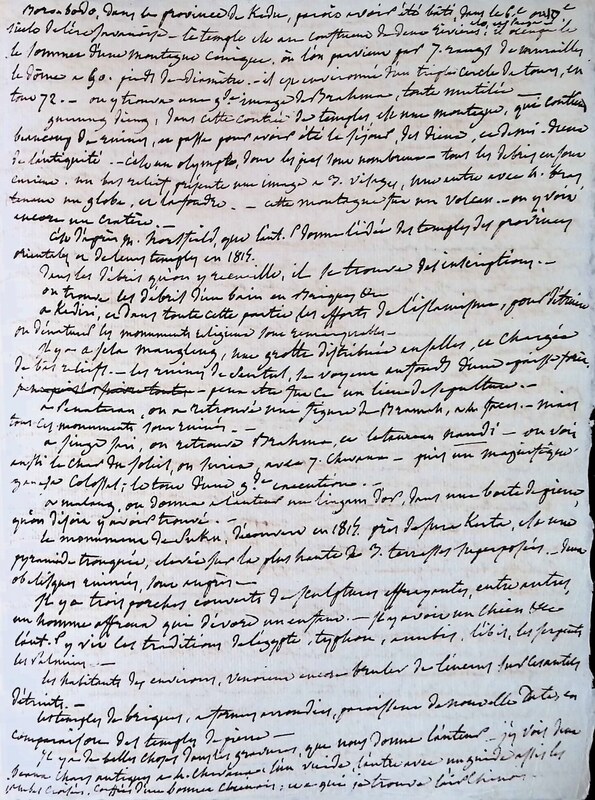 Borobodo, dans la province de Kedu, paroit avoir été bâti, dans le 6e ou
siecle de l'ère javanaise – le temple est au confluent de deux rivières; il occupe
le sommet d'une montagne conique, où l'on parvient par 7. rangs de murailles
le dome a 50. pieds de diamètre. – il est environné d'un triple cercle de tours, en
tout 72. – on y trouve une gde image de Brahma, toute mutilée –
gunung dieng, dans cette contrée de temples, est une montagne, qui contient
beaucoup de ruines, et passe pour avoir été le séjour, des dieux, et demi-dieux
de l'antiquité. – c'est un olympe, dont les sont nombreux – tous les débris en sont
curieux. un bas relief, présente une image a 3. visages, une autre avec 4. bras
tenant un globe, et la foudre. – cette montagne fut un volcan. – on y voit
encore un cratère –
C'est d'après M. Horsfield que l'aut. donne l'idée des temples des provinces
orientales, et de leurs temples en 1815.
Dans les débris qu'on y recueille, il se trouve des inscriptions. –
on trouve les débris d'un bain en Briques &c
a Kediri, et dans toute cette partie les efforts de l'islamisme, pour détruire
ou dénaturer les monuments religieux sont remarquables. –
il y a a sela mangleng, une grotte distribuée en salles, et chargée
de bas reliefs. – les ruines de se voyent au fonds d'une épaisse forêt
peut être fut ce un lieu de sépulture. –
a Penataran, on a retrouvé une figure de Bramah, a 4. faces. – mais
tous ces monuments sont ruinés –
a singa sari, on retrouve Brahma, et le taureau nandi – on voit
aussi le char du soleil, ou suria, avec 7. chevaux – puis un magnifique
ganesa colossal; le tout d'une gde exécution. –
a malang, on donne a l'auteur un lingam d'or, dans une boete de pierre,
qu'on disoit y avoir trouvé. –
le monument de Suku, découvert en 1815. près de sura Kerta, est une
pyramide tronquée, élevée sur la plus haute de 3. terrasses superposées. – deux
obélisques ruinés, sont auprès –
Il y a trois porches couverts de sculptures effrayantes, entre autres,
un homme affreux qui dévore un enfant. – il y avoit un chien &c &c
l'aut. y vit les traditions de l'egypte, typhon, anubis, l'ibis, les serpents
les Palmiers –
les habitants des environs, venoient encore bruler de l'encens sur les autels
détruits. –
les temples de briques, a formes arrondies, paroissent de nouvelle date, en
comparaison des temples de pierre –
Il y a de belles choses dans les gravures, que nous donne l'auteur – j'y vois deux
beaux chars antiques a 4. chevaux; l'un vuide, l'autre avec un guide assis les
jambes croisées, coiffé d'un bonnet chinois; et ce qui se trouve